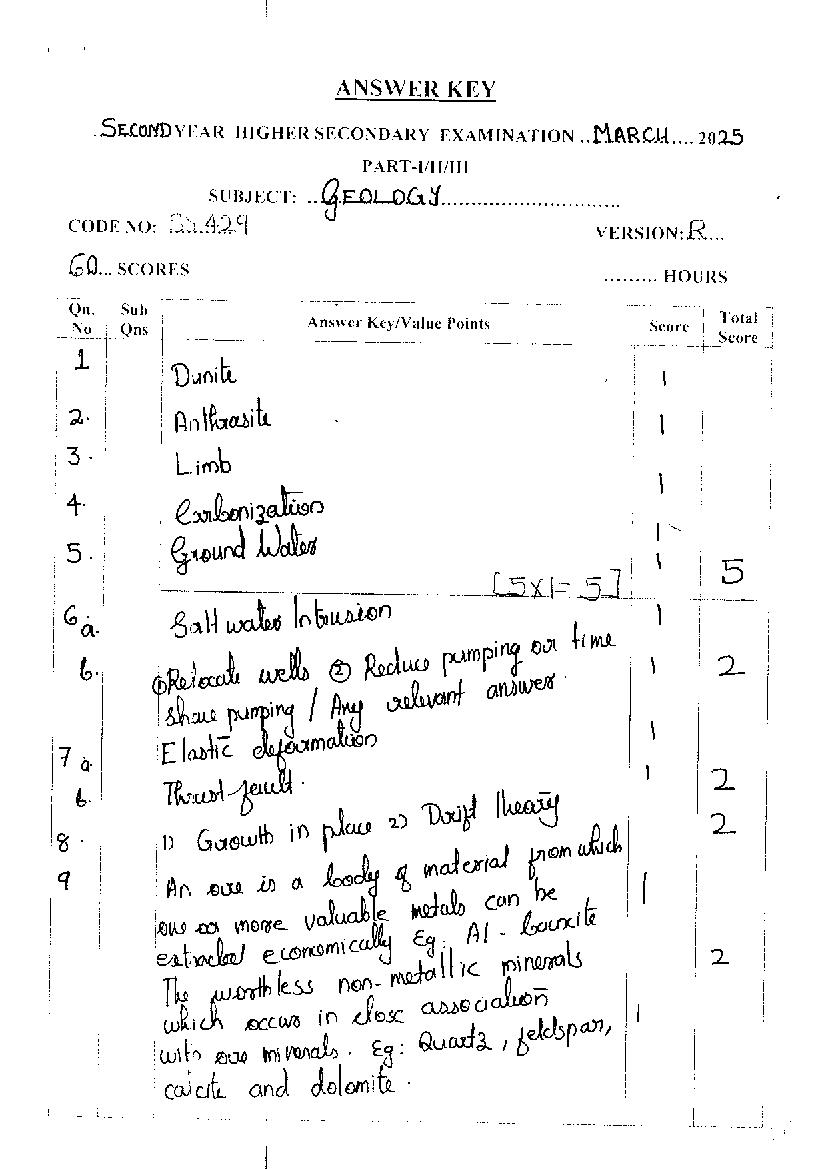 ANSWER KEY
SECOND YEAR HIGHER SECONDARY EXAMINATION ..MARCH.... 2025
PART-I/II/III
SUBJECT: ..GEOLOGY..............................
CODE NO: 429 VERSION: R...
60... SCORES ......... HOURS
Qn. No Sub Qns Answer Key/Value Points Score Total Score
1 Dunite 1
2. Anthrasite 1
3. Limb 1
4. Carbonization 1
5. Ground Water 1
[5x1= 5] 5
6 a. Salt water Intrusion 1
b. ① Relocate wells ② Reduce pumping or time 1 2
share pumping / Any relevant answer.
7 a. Elastic deformation 1
b. Thrust fault. 1 2
8. 1) Growth in place 2) Drift theory 2
9 An ore is a body of material from which 1
one or more valuable metals can be
extracted economically Eg: Al - bauxite
The worthless non-metallic minerals 2
which occur in close association 1
with ore minerals. Eg: Quartz, feldspar,
calcite and dolomite.